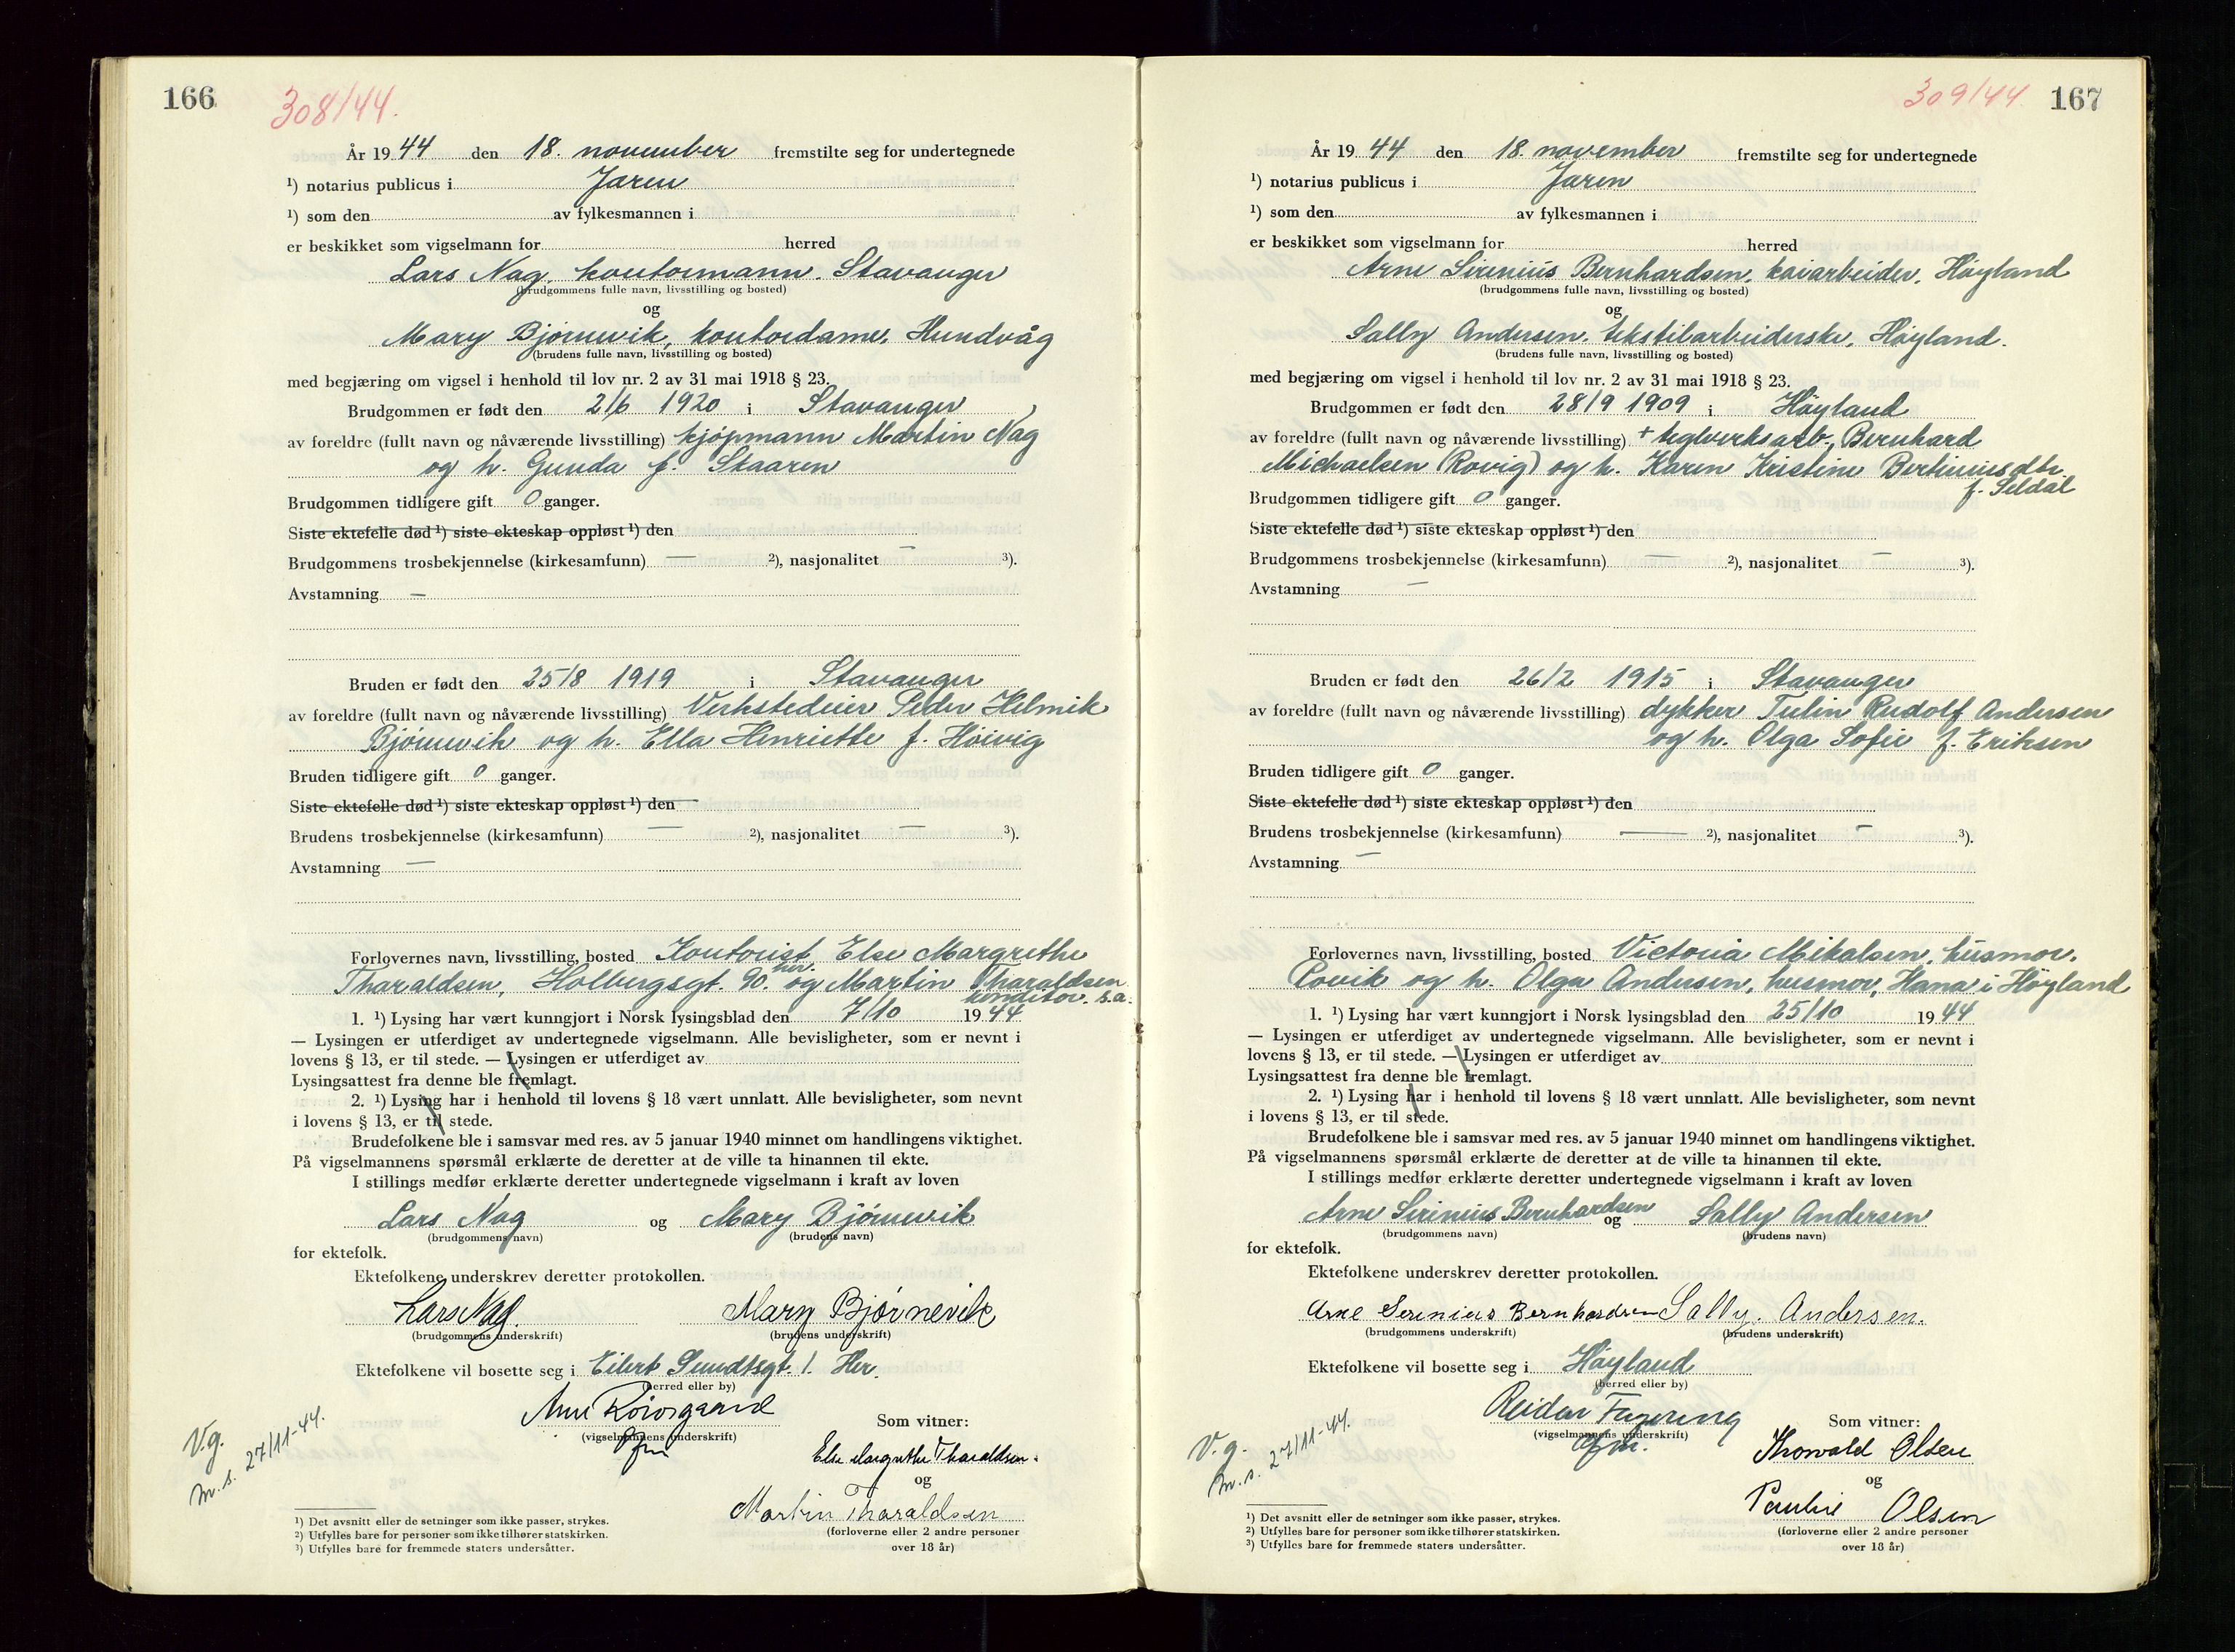 166 308/44.
År 19 44 den 18. november fremstilte seg for undertegnede
¹) notarius publicus i Jæren
¹) som den av fylkesmannen i
er beskikket som vigselmann for herred
Lars Nag, kontormann. Stavanger
(brudgommens fulle navn, livsstilling og bosted)
og
Mary Bjørnevik, kontordame, Hundvåg
(brudens fulle navn, livsstilling og bosted)
med begjæring om vigsel i henhold til lov nr. 2 av 31 mai 1918 § 23.
Brudgommen er født den 2/6 1920 i Stavanger
av foreldre (fullt navn og nåværende livsstilling) kjøpmann Martin Nag
og h. Gunda f. Skaaren
Brudgommen tidligere gift 0 ganger.
Siste ektefelle død ¹) siste ekteskap oppløst ¹) den
Brudgommens trosbekjennelse (kirkesamfunn) — ²), nasjonalitet — ³).
Avstamning —
Bruden er født den 25/8 1919 i Stavanger
av foreldre (fullt navn og nåværende livsstilling) Verkstedeier Peder Helmik
Bjørnevik og h. Ella Henriette f. Høivig
Bruden tidligere gift 0 ganger.
Siste ektefelle død ¹) siste ekteskap oppløst ¹) den
Brudens trosbekjennelse (kirkesamfunn) — ²), nasjonalitet — ³).
Avstamning —
Forlovernes navn, livsstilling, bosted Kontorist Else Margrethe
Tharaldsen, Holbergsgt. 90. her. og Martin Tharaldsen
konditor. s.a.
1. ¹) Lysing har vært kunngjort i Norsk lysingsblad den 7/10 19 44
— Lysingen er utferdiget av undertegnede vigselmann. Alle bevisligheter, som er nevnt i
lovens § 13, er til stede. — Lysingen er utferdiget av
Lysingsattest fra denne ble fremlagt.
2. ¹) Lysing har i henhold til lovens § 18 vært unnlatt. Alle bevisligheter, som nevnt
i lovens § 13, er til stede.
Brudefolkene ble i samsvar med res. av 5 januar 1940 minnet om handlingens viktighet.
På vigselmannens spørsmål erklærte de deretter at de ville ta hinannen til ekte.
I stillings medfør erklærte deretter undertegnede vigselmann i kraft av loven
Lars Nag og Mary Bjørnevik
(brudgommens navn) (brudens navn)
for ektefolk.
Ektefolkene underskrev deretter protokollen.
Lars Nag. Mary Bjørnevik
(brudgommens underskrift) (brudens underskrift)
Ektefolkene vil bosette seg i Eilert Sundtsgt. 1. Her.
(herred eller by)
(vigselmannens underskrift)
Som vitner:
Else Margrethe Tharaldsen.
og
Martin Tharaldsen
(forloverne eller 2 andre personer
over 18 år)
V.g.
m.s. 27/11-44.
¹) Det avsnitt eller de setninger som ikke passer, strykes.
²) Utfylles bare for personer som ikke tilhører statskirken.
³) Utfylles bare for fremmede staters undersåtter.
309/44. 167
År 19 44 den 18. november fremstilte seg for undertegnede
¹) notarius publicus i Jæren
¹) som den av fylkesmannen i
er beskikket som vigselmann for herred
Arne Sirinius Bernhardsen, kaiarbeider, Høyland
(brudgommens fulle navn, livsstilling og bosted)
og
Sally Andersen, tekstilarbeiderske, Høyland.
(brudens fulle navn, livsstilling og bosted)
med begjæring om vigsel i henhold til lov nr. 2 av 31 mai 1918 § 23.
Brudgommen er født den 28/9 1909 i Høyland
av foreldre (fullt navn og nåværende livsstilling) + teglverksarb., Bernhard
Michaelsen (Rovig) og h. Karen Kristine Bertinius dtr.
f. Seldal
Brudgommen tidligere gift 0 ganger.
Siste ektefelle død ¹) siste ekteskap oppløst ¹) den
Brudgommens trosbekjennelse (kirkesamfunn) — ²), nasjonalitet — ³).
Avstamning —
Bruden er født den 26/2 1915 i Stavanger
av foreldre (fullt navn og nåværende livsstilling) dykker Tulin Rudolf Andersen
og h. Olga Sofie f. Eriksen
Bruden tidligere gift 0 ganger.
Siste ektefelle død ¹) siste ekteskap oppløst ¹) den
Brudens trosbekjennelse (kirkesamfunn) — ²), nasjonalitet — ³).
Avstamning —
Forlovernes navn, livsstilling, bosted Victoria Mikalsen, husmor.
og h. Olga Andersen, husmor, Hana i Høyland
1. ¹) Lysing har vært kunngjort i Norsk lysingsblad den 25/10 19 44
— Lysingen er utferdiget av undertegnede vigselmann. Alle bevisligheter, som er nevnt i
lovens § 13, er til stede. — Lysingen er utferdiget av
Lysingsattest fra denne ble fremlagt.
2. ¹) Lysing har i henhold til lovens § 18 vært unnlatt. Alle bevisligheter, som nevnt
i lovens § 13, er til stede.
Brudefolkene ble i samsvar med res. av 5 januar 1940 minnet om handlingens viktighet.
På vigselmannens spørsmål erklærte de deretter at de ville ta hinannen til ekte.
I stillings medfør erklærte deretter undertegnede vigselmann i kraft av loven
Arne Sirinius Bernhardsen og Sally Andersen
(brudgommens navn) (brudens navn)
for ektefolk.
Ektefolkene underskrev deretter protokollen.
Arne Serenius Bernhardsen Sally. Andersen.
(brudgommens underskrift) (brudens underskrift)
Ektefolkene vil bosette seg i Høyland
(herred eller by)
Reidar
(vigselmannens underskrift)
Som vitner:
Thorvald Olsen
og
Olsen
(forloverne eller 2 andre personer
over 18 år)
V.g.
m.s. 27/11-44.
¹) Det avsnitt eller de setninger som ikke passer, strykes.
²) Utfylles bare for personer som ikke tilhører statskirken.
³) Utfylles bare for fremmede staters undersåtter.